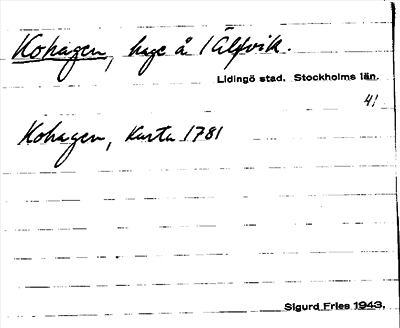 Kohagen, hage å 1 Älfvik.
Lidingö stad. Stockholms län.
41
Kohagen, Karta 1781
Sigurd Fries 1943,